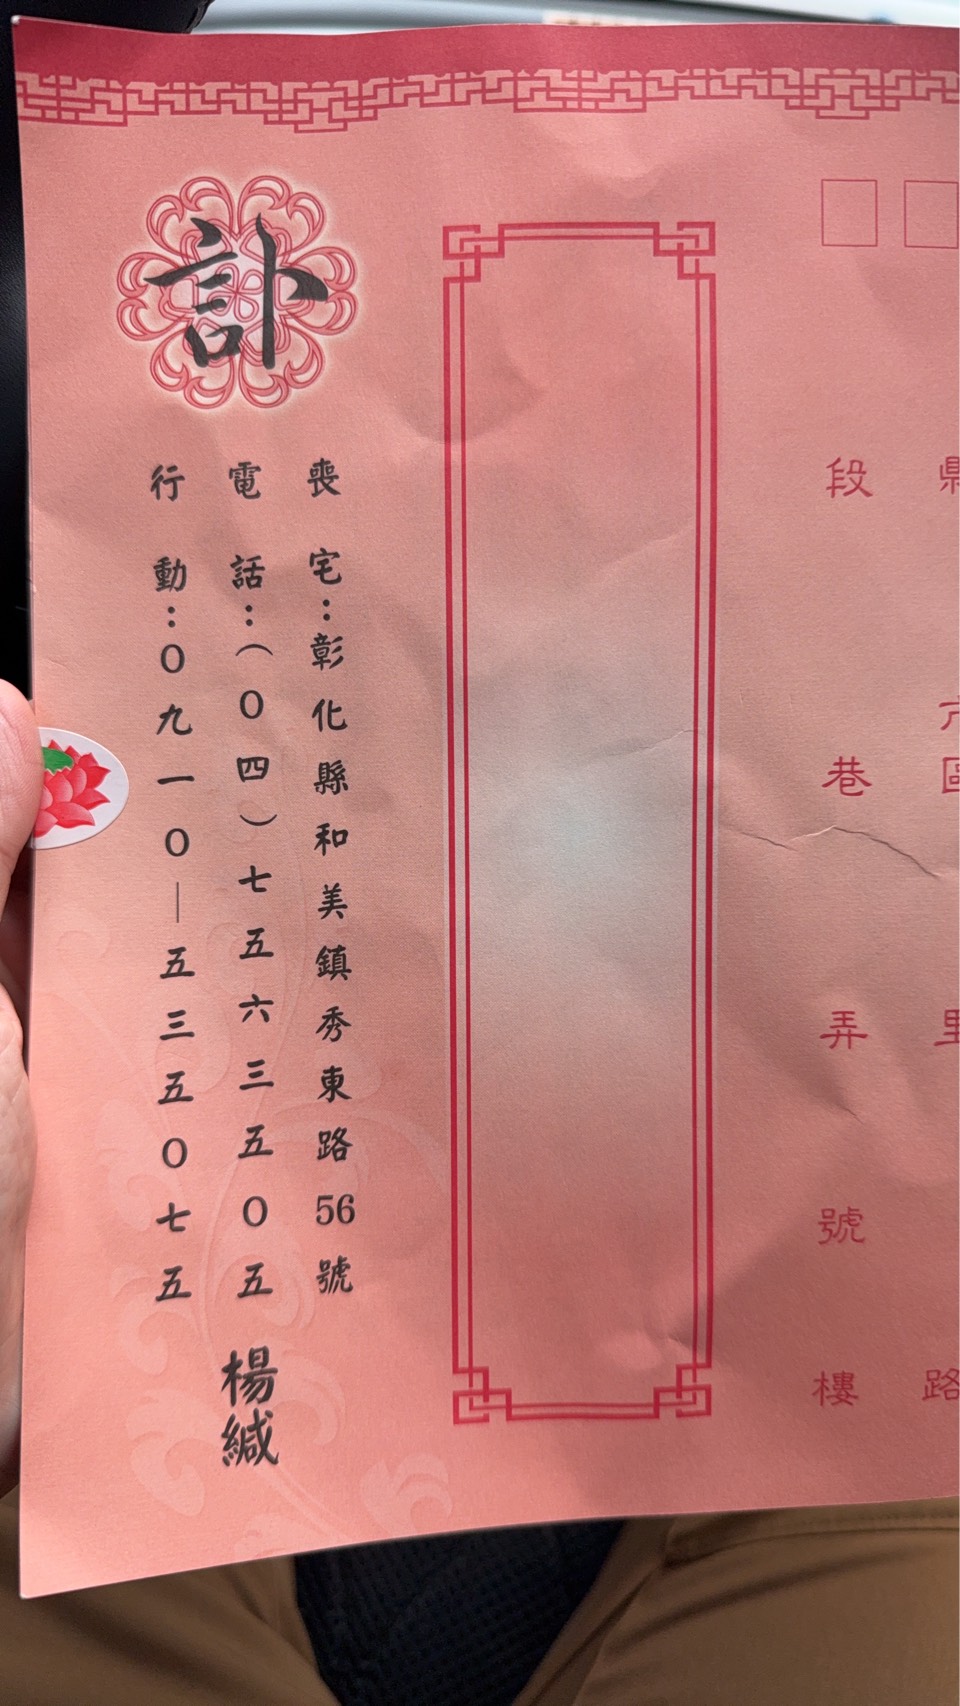 縣 市 區 里 路
段 巷 弄 號 樓
喪宅：彰化縣和美鎮秀東路56號
電話：（０四）七五六三五０五
行動：０九一０—五三五０七五
楊緘
訃